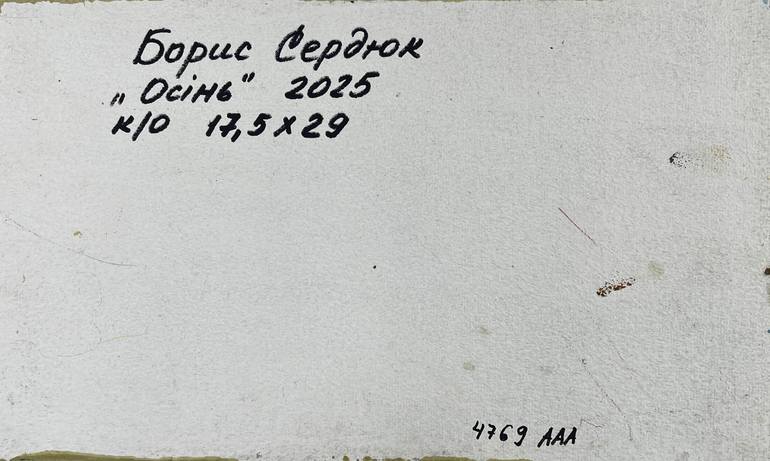 Борис Сердюк
„Осінь" 2025
к/о 17,5х29
4769 ААА